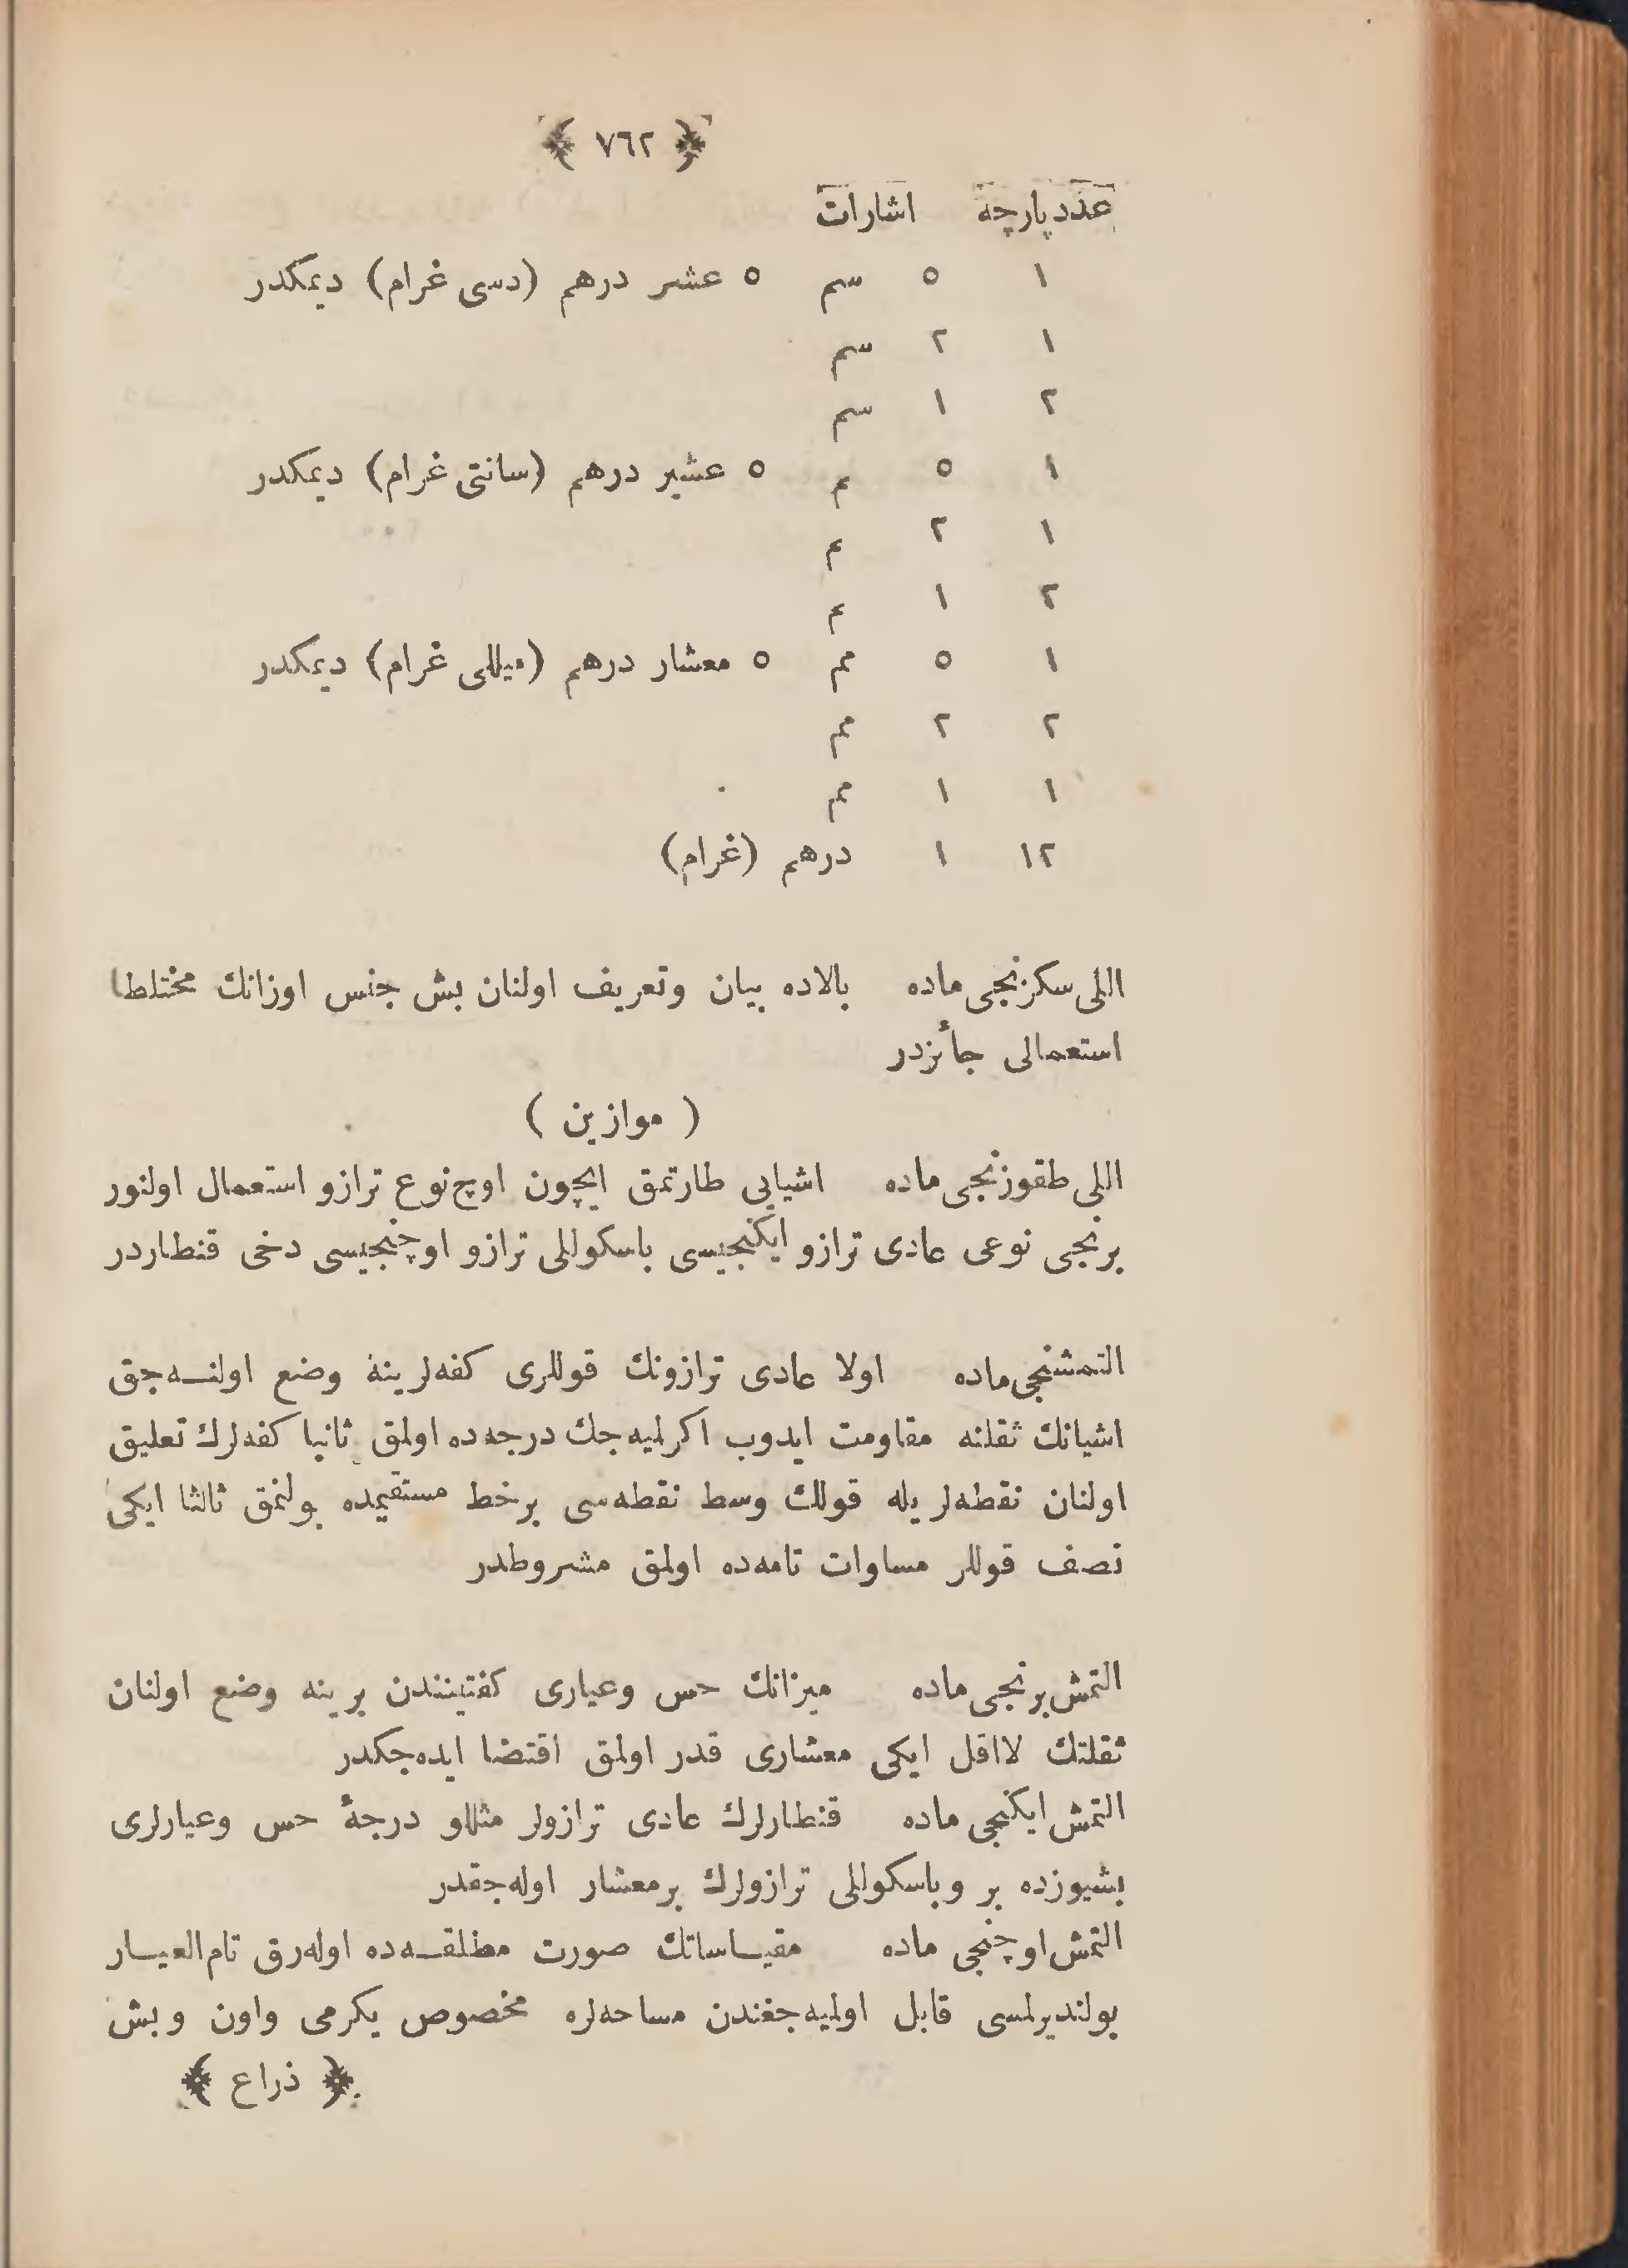 ﴿ ٧٦٢ ﴾
عدد پارچه اشارات
١ ٥ سم ٥ عشر درهم (دسی غرام) دیمکدر
١ ٢ سم
٢ ١ سم
١ ٥ م ٥ عشیر درهم (سانتی غرام) دیمکدر
١ ٢ م
٢ ١ م
١ ٥ مم ٥ معشار درهم (میللی غرام) دیمکدر
٢ ٢ مم
١ ١ مم
١٢ ١ درهم (غرام)
اللی سکزنجی ماده بالاده بیان وتعریف اولنان بش جنس اوزانك مختلطا
استعمالی جائزدر
( موازین )
اللی طقوزنجی ماده اشیایی طارتمق ایچون اوچ نوع ترازو استعمال اولنور
برنجی نوعی عادی ترازو ایکنجیسی باسکوللی ترازو اوچنجیسی دخی قنطاردر
التمشنجی ماده اولا عادی ترازونك قوللری کفه‌لرینه وضع اولنه‌جق
اشیانك ثقلنه مقاومت ایدوب اکرلمیه‌جك درجه‌ده اولمق ثانیا کفه‌لرك تعلیق
اولنان نقطه‌لریله قولك وسط نقطه‌سی برخط مستقیمده بولنمق ثالثا ایکی
نصف قوللر مساوات تامه‌ده اولمق مشروطدر
التمش برنجی ماده میزانك حس وعیاری کفتیندن برینه وضع اولنان
ثقلتك لااقل ایکی معشاری قدر اولمق اقتضا ایده‌جکدر
التمش ایکنجی ماده قنطارلرك عادی ترازولر مثللو درجهٔ حس وعیارلری
بشیوزده بر وباسکوللی ترازولرك برمعشار اوله‌جقدر
التمش اوچنجی ماده مقیاساتك صورت مطلقه‌ده اوله‌رق تام العیار
بولندیرلمسی قابل اولمیه‌جغندن مساحه‌لره مخصوص یکرمی واون وبش
﴿ ذراع ﴾